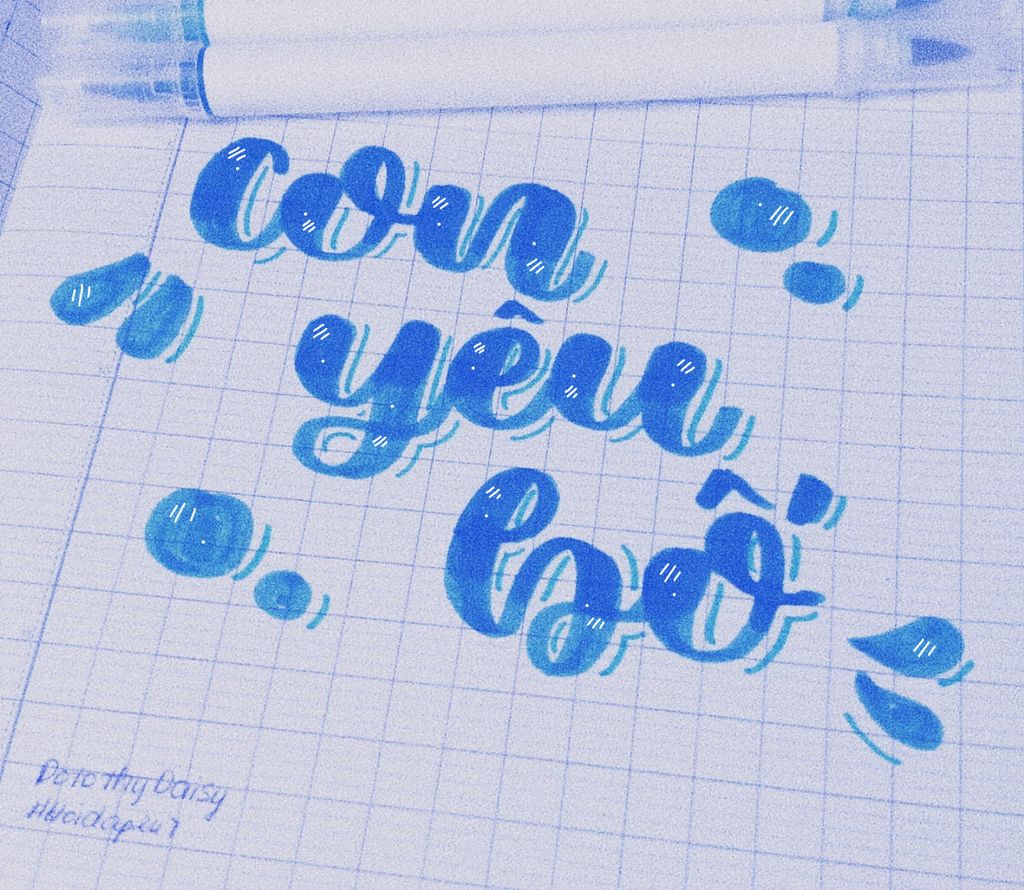 con
yêu
bố
Dorothy Daisy